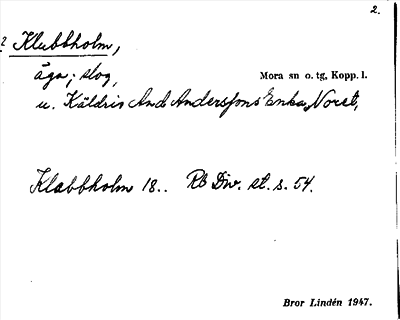 2.
? Klubbholm,
äga; slog,
Mora sn o. tg, Kopp. l.
u. Käldris And Anderssons Enka, Noret,
Klabbholm 18.. Rb Div. st. s. 54.
Bror Lindén 1947.